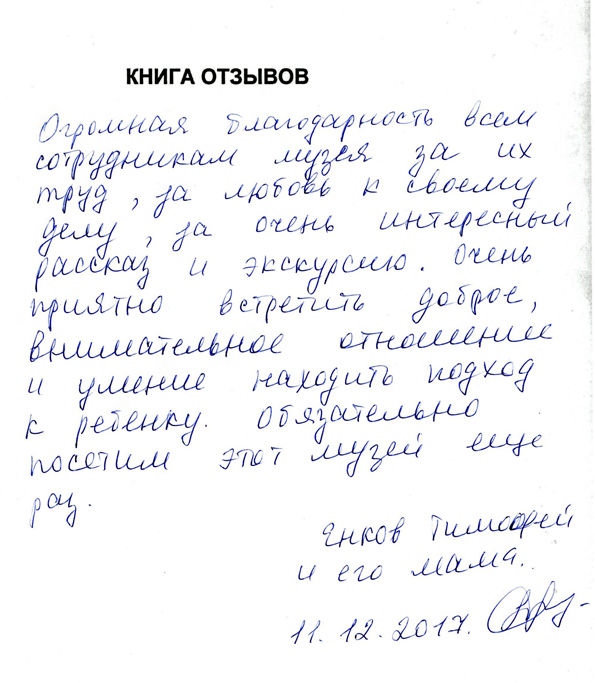 КНИГА ОТЗЫВОВ
Огромная благодарность всем
сотрудникам музея за их
труд, за любовь к своему
делу, за очень интересный
рассказ и экскурсию. Очень
приятно встретить доброе,
внимательное отношение
и умение находить подход
к ребенку. Обязательно
посетим этот музей еще
раз.
Енков Тимофей
и его мама.
11.12.2017.